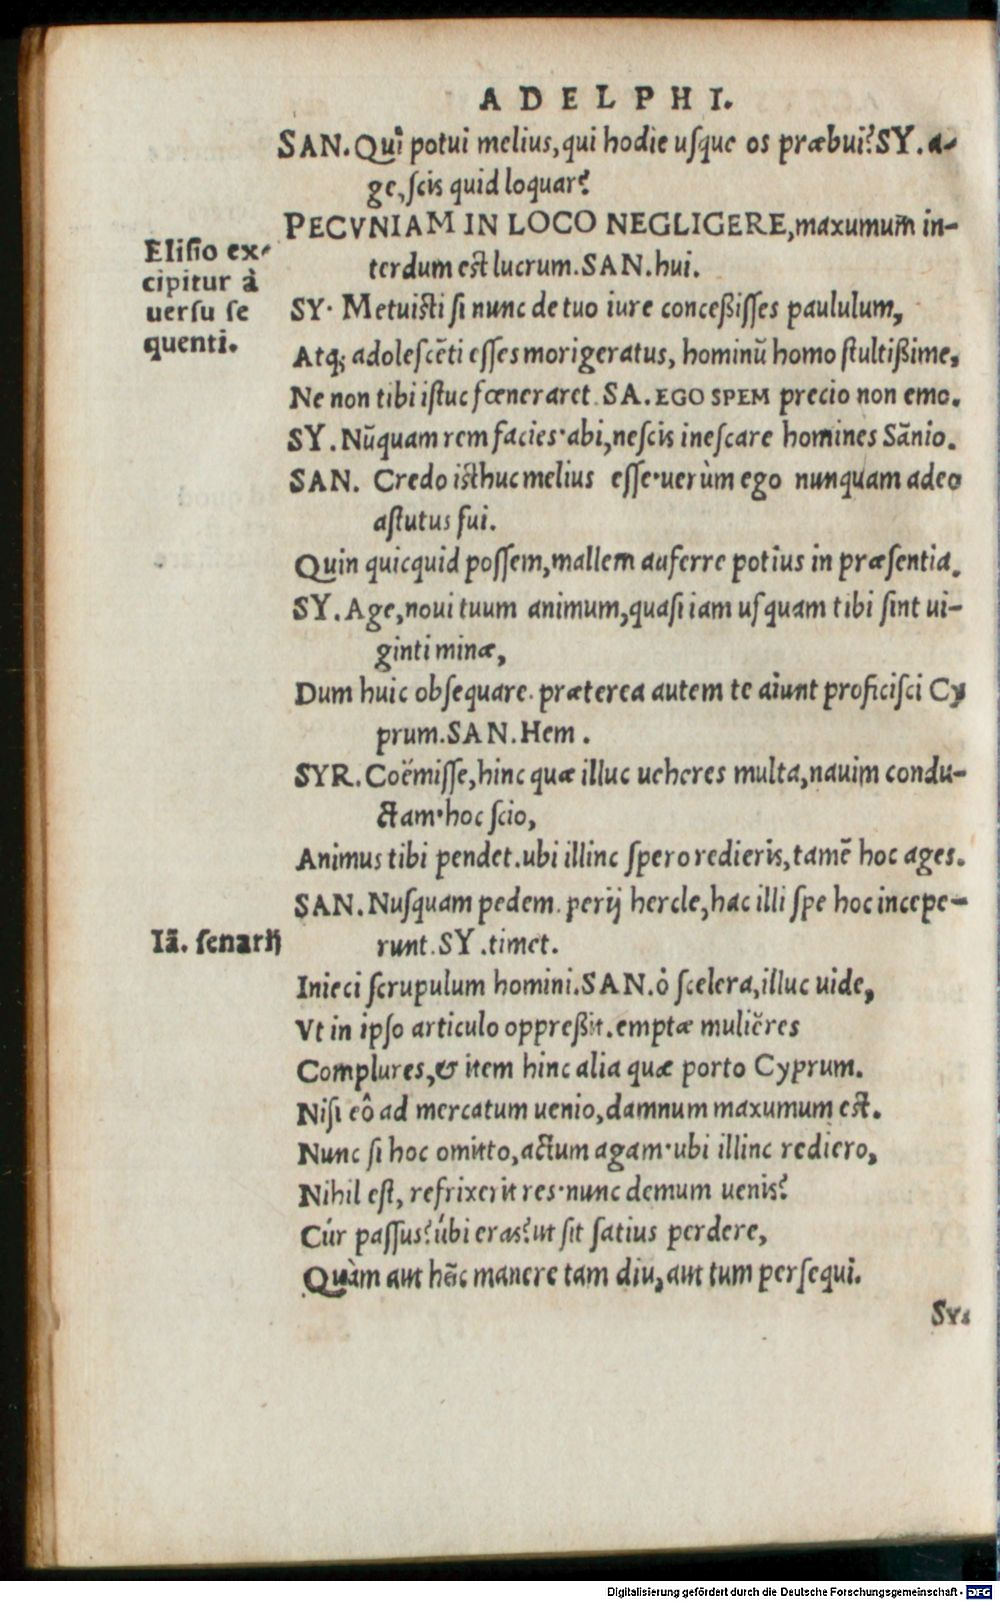 ADELPHI.
SAN. Quî potui melius, qui hodie uſque os præbui? SY. a-
ge, ſcis quid loquar?
PECVNIAM IN LOCO NEGLIGERE, maxumum̃ in-
terdum eſt lucrum. SAN. hui.
Eliſio ex-
cipitur à
uerſu ſe
quenti.
SY. Metuiſti ſi nunc de tuo iure conceßiſſes paululum,
Atq; adoleſcẽti eſſes morigeratus, hominũ homo ſtultißime,
Ne non tibi iſtuc fœneraret. SA. EGO SPEM precio non emo.
SY. Nũquam rem facies· abi, neſcis ineſcare homines Sãnio.
SAN. Credo iſthuc melius eſſe· uerùm ego nunquam adeo
aſtutus fui.
Quin quicquid poſſem, mallem auferre potius in præſentia.
SY. Age, noui tuum animum, quaſi iam uſquam tibi ſint ui-
ginti minæ,
Dum huic obſequare. præterea autem te aiunt proficiſci Cy
prum. SAN. Hem.
SYR. Coëmiſſe, hinc quæ illuc ueheres multa, nauim condu-
ctam· hoc ſcio,
Animus tibi pendet. ubi illinc ſpero redieris, tamẽ hoc ages.
SAN. Nuſquam pedem. perij hercle, hac illi ſpe hoc incepe-
runt. SY. timet.
Iã. ſenarij
Inieci ſcrupulum homini. SAN. ô ſcelera, illuc uide,
Vt in ipſo articulo oppreßit. emptæ mulieres
Complures, & item hinc alia quæ porto Cyprum.
Niſi eô ad mercatum uenio, damnum maxumum eſt.
Nunc ſi hoc omitto, actum agam· ubi illinc rediero,
Nihil eſt, refrixerit res· nunc demum uenis?
Cúr paſſus? úbi eras? ut ſit ſatius perdere,
Quàm aut hĩc manere tam diu, aut tum perſequi.
Sy.
Digitalisierung gefördert durch die Deutsche Forschungsgemeinschaft - DFG